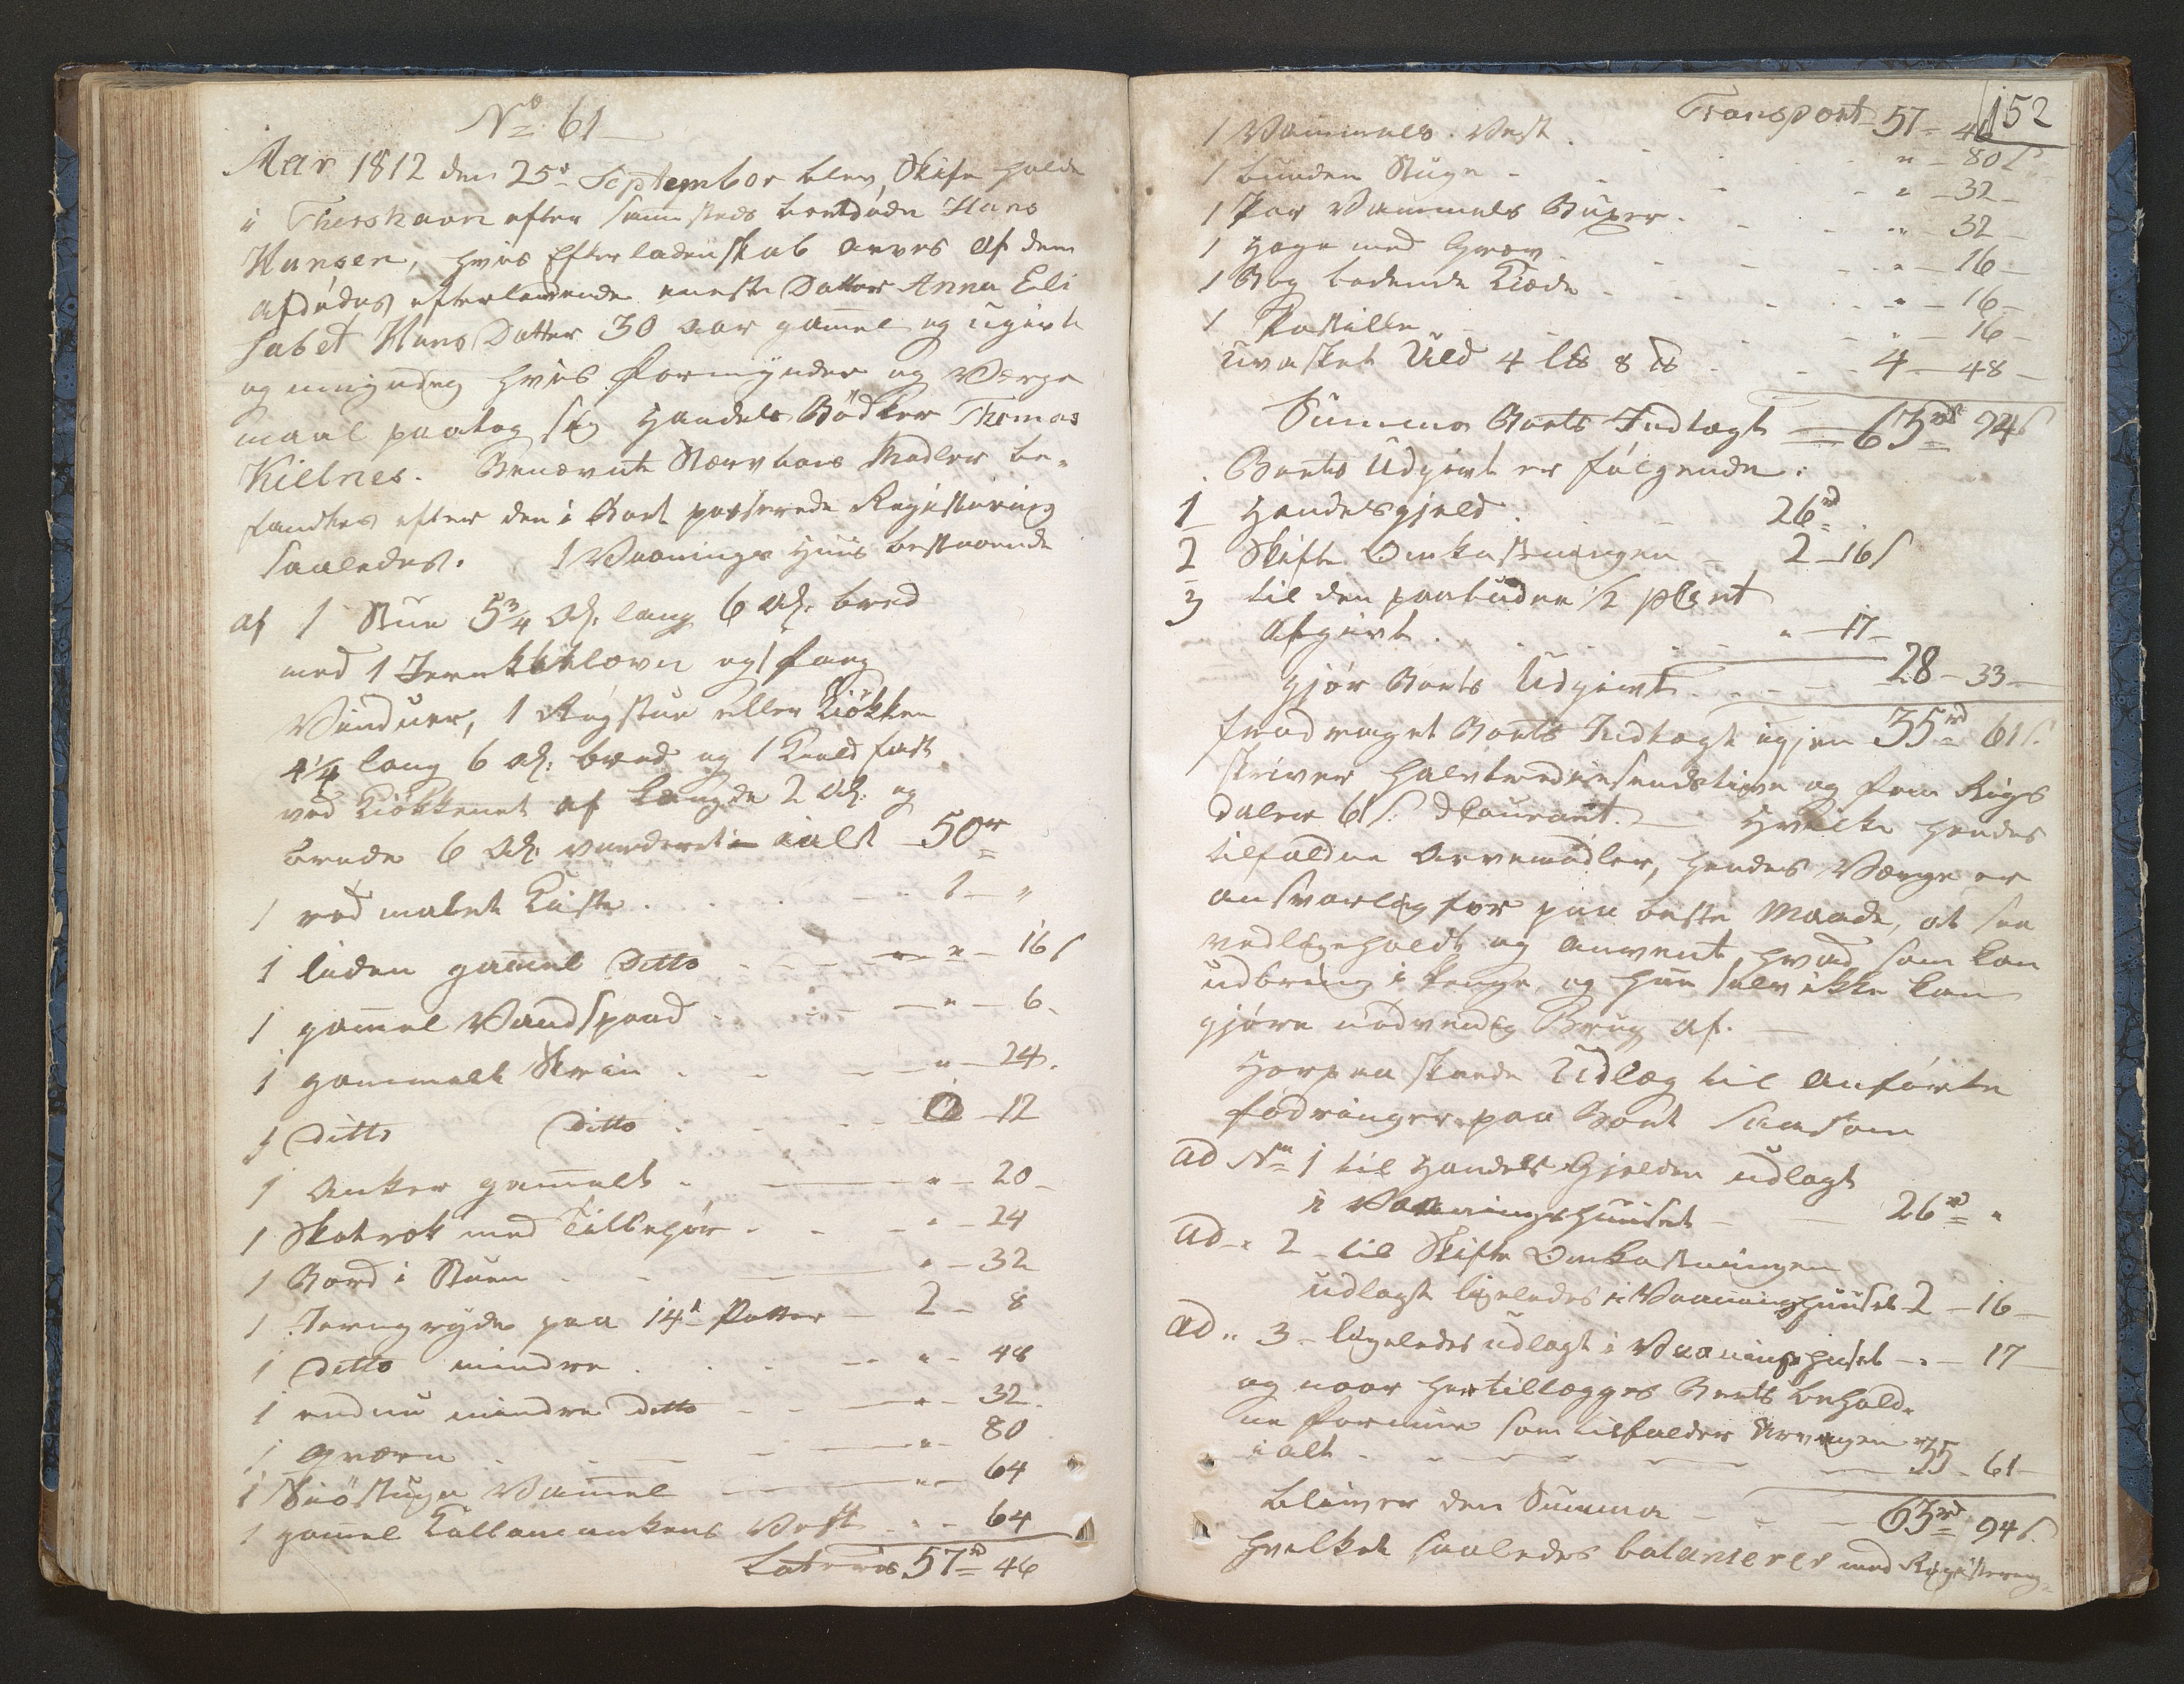 No 61
Aar 1812 den 25de September blev Skifte holdt
i Thorshavn efter samesteds bortdøde Hans
Hansen, hvis Efterladenskab arves af den
afdødes efterlevende eneste Datter Anna Eli
sabet Hans Datter 30 Aar gamel og ugivt
og umyndig hvis Formynder og Værge
maal paatog sig Handels Bødker Thomas
Killnes. Benævnte Stervboes Midler be-
fandtes efter den i Boet passerede Registering
saaledes. 1 Vaanings Huus bestaaende
af 1 Stue 5¾ Al: lang 6 Al: bred
med 1 Jernkakkelovn og 1 Fang
Vinduer, 1 Røgstue eller Kiøkken
4¼ lang 6 Al: bred og 1 fast
ved Kiøkkenet af Længde 2 Al: og
Brede 6 Al: vurderet ialt 50rd
1 rød malet Kiste . . . 1 - "
1 liden gamel Ditto - - - " - 16 s
1 gamel Vandspand - - " - 6 -
1 gammelt Skrin . - - " - 24.
1 Ditto Ditto . - - - 12
1 Anker gamelt - - " - 20 -
1 Skotrok med Tilbehør - - " - 24
1 Bord i Stuen - - " - 32
1 Jerngryde paa 14 Potter - 2 - 8
1 Ditto mindre . . . - " - 48
1 endnu mindre Ditto - - " - 32.
1 Qværn . - - " - 80
1 Siøstuge Vamel - - " - 64
1 gamel Kallemankens Vest - " - 64
Lateris 57rd 46
152
Transport 57 - 46
1 Vammels Vest . - - " - 80 s
1 bunden Stuge - - - " - 32 -
1 Par Vammels Buxer . - - " - 32 -
1 Hage med Green - - " - 16 -
1 Bog Kiæde - - - " - 16 -
1 Postille - - - " - 16 -
Uvasket Uld 4 l℔ 8 ℔ - - 4 - 48 -
Summa Boets Indtægt 63rd 94 s
Boets Udgivt er følgende:
1 Handelsgjeld . . - 26rd .
2 Skifte Omkostningen - 2 - 16 s
3 til den paabudne ½ pCent
Afgivt . . . " - 17 -
gjør Boets Udgivt - - - 28 - 33 -
fradraget Boets Indtægt igjen 35rd 61 s.
skriver halvtredsindstive og fem Rigs
daler 61 s. dCourant. - Hvilke hendes
tilfaldne Arvemidler, hendes Værge er
ansvarlig for paa beste Maade, at see
vedligeholdt og anvent, hvad som kan
udbring i Penge, og hun selv ikke kan
gjøre nødvendig Brug af. -
Herpaa skeede Udlæg til anførte
fodringer paa Boet saasom
ad No 1 til Handels Gjelden udlagt
i Vaaningshuuset - - 26rd "
ad " 2 - til Skifte Omkostningen
udlagt ligeledes i Vaaningshuuset 2 - 16 -
ad " 3 - ligeledes udlagt i Vaaningshuset - " - 17 -
og naar hertillegges Boets behold-
ne Formue som tilfalder Arvingen
ialt - - - - - 35 - 61 -
bliver den Summa - - - 63rd 94 s.
hvilket saaledes balancerer med Registering-